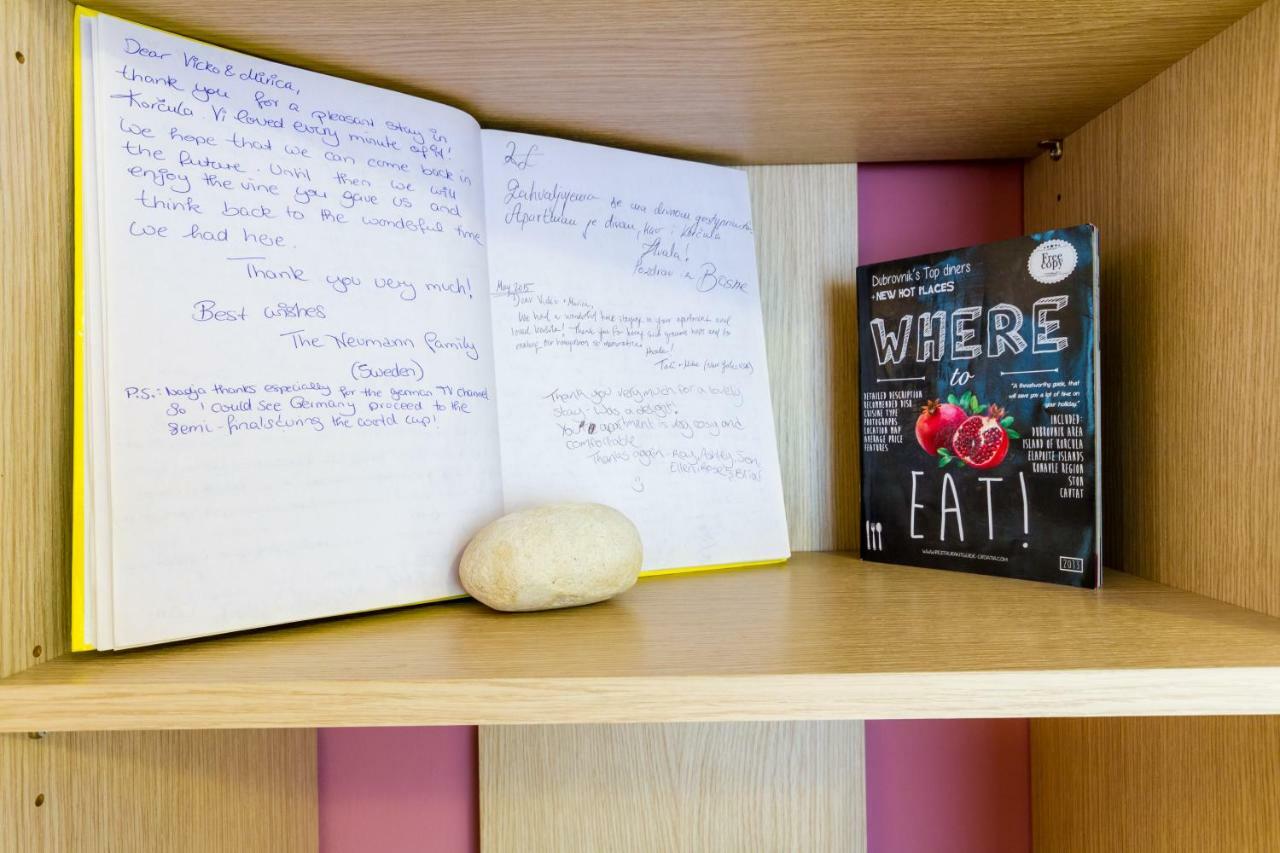 Dear Vicko & Mirica,
thank you for a pleasant stay in
Korčula. Vi loved every minute of it!
We hope that we can come back in
the future. Until then we will
enjoy the vine you gave us and
think back to the wonderful time
we had here.
Thank you very much!
Best wishes
The Neumann family
(Sweden)
P.S.: Nadja thanks especially for the german TV channel
So I could see Germany proceed to the
semi-finals during the world cup!
Zahvaljujemo se na divnom gostoprimstvu.
Apartman je divan, kao i Korčula
Hvala!
Pozdrav iz Bosne
May 2015
Dear Vicko + Marica,
We had a wonderful time staying in your apartment and
loved Korčula! Thank you for being such generous hosts and for
making our honeymoon so memorable.
Hvala!
(New York, USA)
Thank you very much for a lovely
stay. Was a delight!
Your apartment is very cosy and
comfortable
Thanks again - Ray, Ashley, Son,
Ellen, Rose & Brian
:)
Dubrovnik's Top diners
+ NEW HOT PLACES
Free
copy
WHERE
to
EAT!
DETAILED DESCRIPTION
RECOMMENDED DISH
CUISINE TYPE
PHOTOGRAPHS
LOCATION MAP
AVERAGE PRICE
FEATURES
"A trustworthy guide, that
will save you a lot of time on
your holiday."
INCLUDED:
DUBROVNIK AREA
ISLAND OF KORCULA
ELAPHITE ISLANDS
KONAVLE REGION
STON
CAVTAT
WWW.RESTAURANTGUIDE-CROATIA.COM
2013